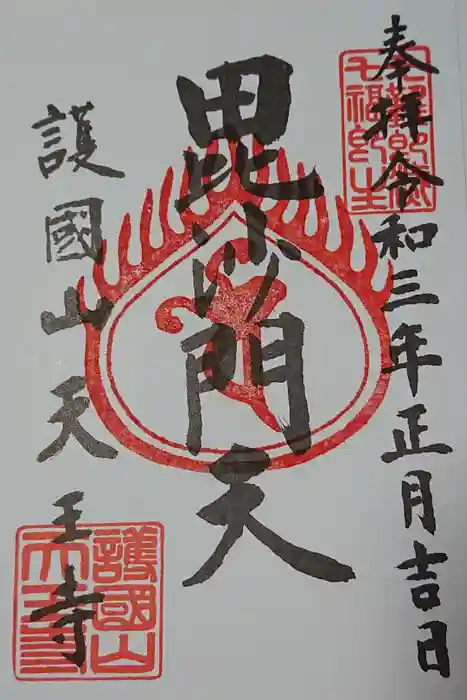 奉拝令和三年正月吉日
毘沙門天
護國山天王寺
護國山
天王寺
七福即生